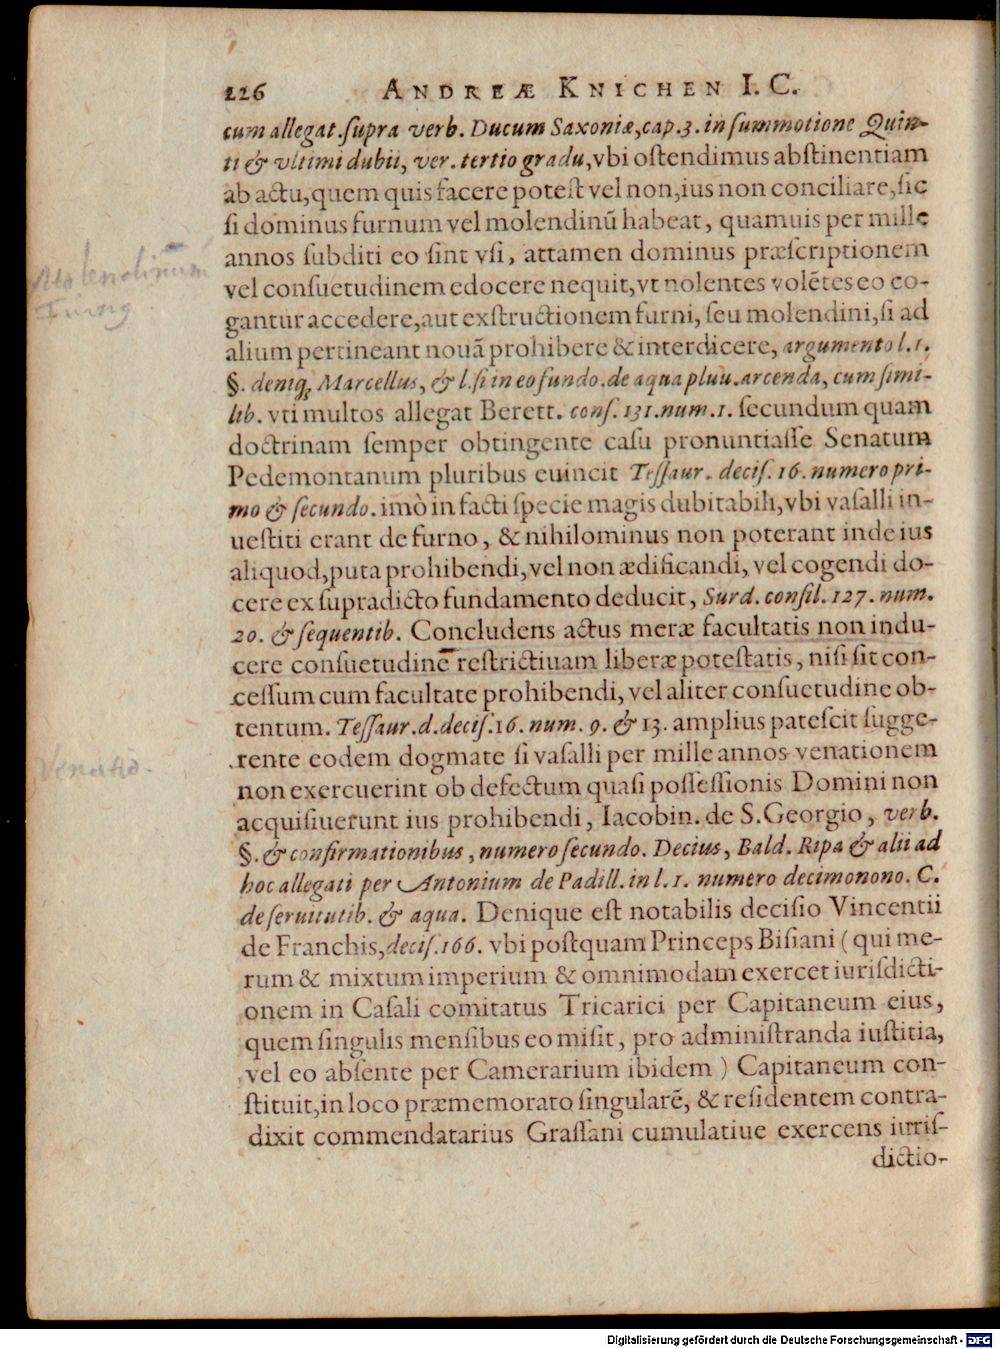 226 ANDREÆ KNICHEN I. C.
cum allegat. ſupra verb. Ducum Saxoniæ, cap. 3. in ſummotione Quin-
ti & vltimi dubii, ver. tertio gradu, vbi oſtendimus abſtinentiam
ab actu, quem quis facere poteſt vel non, ius non conciliare, ſic
ſi dominus furnum vel molendinū habeat, quamuis per mille
annos ſubditi eo ſint vſi, attamen dominus præſcriptionem
vel conſuetudinem edocere nequit, vt nolentes volētes eo co-
gantur accedere, aut exſtructionem furni, ſeu molendini, ſi ad
alium pertineant nouā prohibere & interdicere, argumento l. 1.
§. deniq; Marcellus, & l. ſi in eo fundo. de aqua pluu. arcenda, cum ſimi-
lib. vti multos allegat Berett. conſ. 131. num. 1. ſecundum quam
doctrinam ſemper obtingente caſu pronuntiaſſe Senatum
Pedemontanum pluribus euincit Teſſaur. deciſ. 16. numero pri-
mo & ſecundo. imò in facti ſpecie magis dubitabili, vbi vaſalli in-
ueſtiti erant de furno, & nihilominus non poterant inde ius
aliquod, puta prohibendi, vel non ædificandi, vel cogendi do-
cere ex ſupradicto fundamento deducit, Surd. conſil. 127. num.
20. & ſequentib. Concludens actus meræ facultatis non indu-
cere conſuetudinē reſtrictiuam liberæ poteſtatis, niſi ſit con-
ceſſum cum facultate prohibendi, vel aliter conſuetudine ob-
tentum. Teſſaur. d. deciſ. 16. num. 9. & 13. amplius pateſcit ſugge-
rente eodem dogmate ſi vaſalli per mille annos venationem
non exercuerint ob defectum quaſi poſſeſſionis Domini non
acquiſiuerunt ius prohibendi, Iacobin. de S. Georgio, verb.
§. & confirmationibus, numero ſecundo. Decius, Bald. Ripa & alii ad
hoc allegati per Antonium de Padill. in l. 1. numero decimonono. C.
de ſeruitutib. & aqua. Denique eſt notabilis deciſio Vincentii
de Franchis, deciſ. 166. vbi poſtquam Princeps Biſiani ( qui me-
rum & mixtum imperium & omnimodam exercet iuriſdicti-
onem in Caſali comitatus Tricarici per Capitaneum eius,
quem ſingulis menſibus eo miſit, pro adminiſtranda iuſtitia,
vel eo abſente per Camerarium ibidem ) Capitaneum con-
ſtituit, in loco præmemorato ſingularē, & reſidentem contra-
dixit commendatarius Graſſani cumulatiue exercens iuriſ-
dictio-
Molendinum
Venatio.
Digitalisierung gefördert durch die Deutsche Forschungsgemeinschaft - DFG